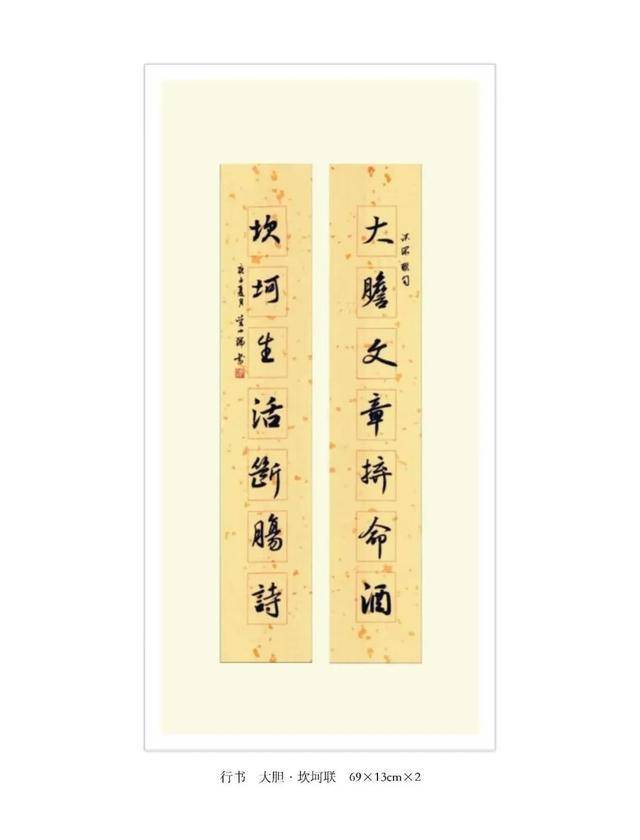 大膽文章拚命酒
聯句
坎坷生活斷腸詩
庚子夏月
行书 大胆·坎坷联 69×13cm×2